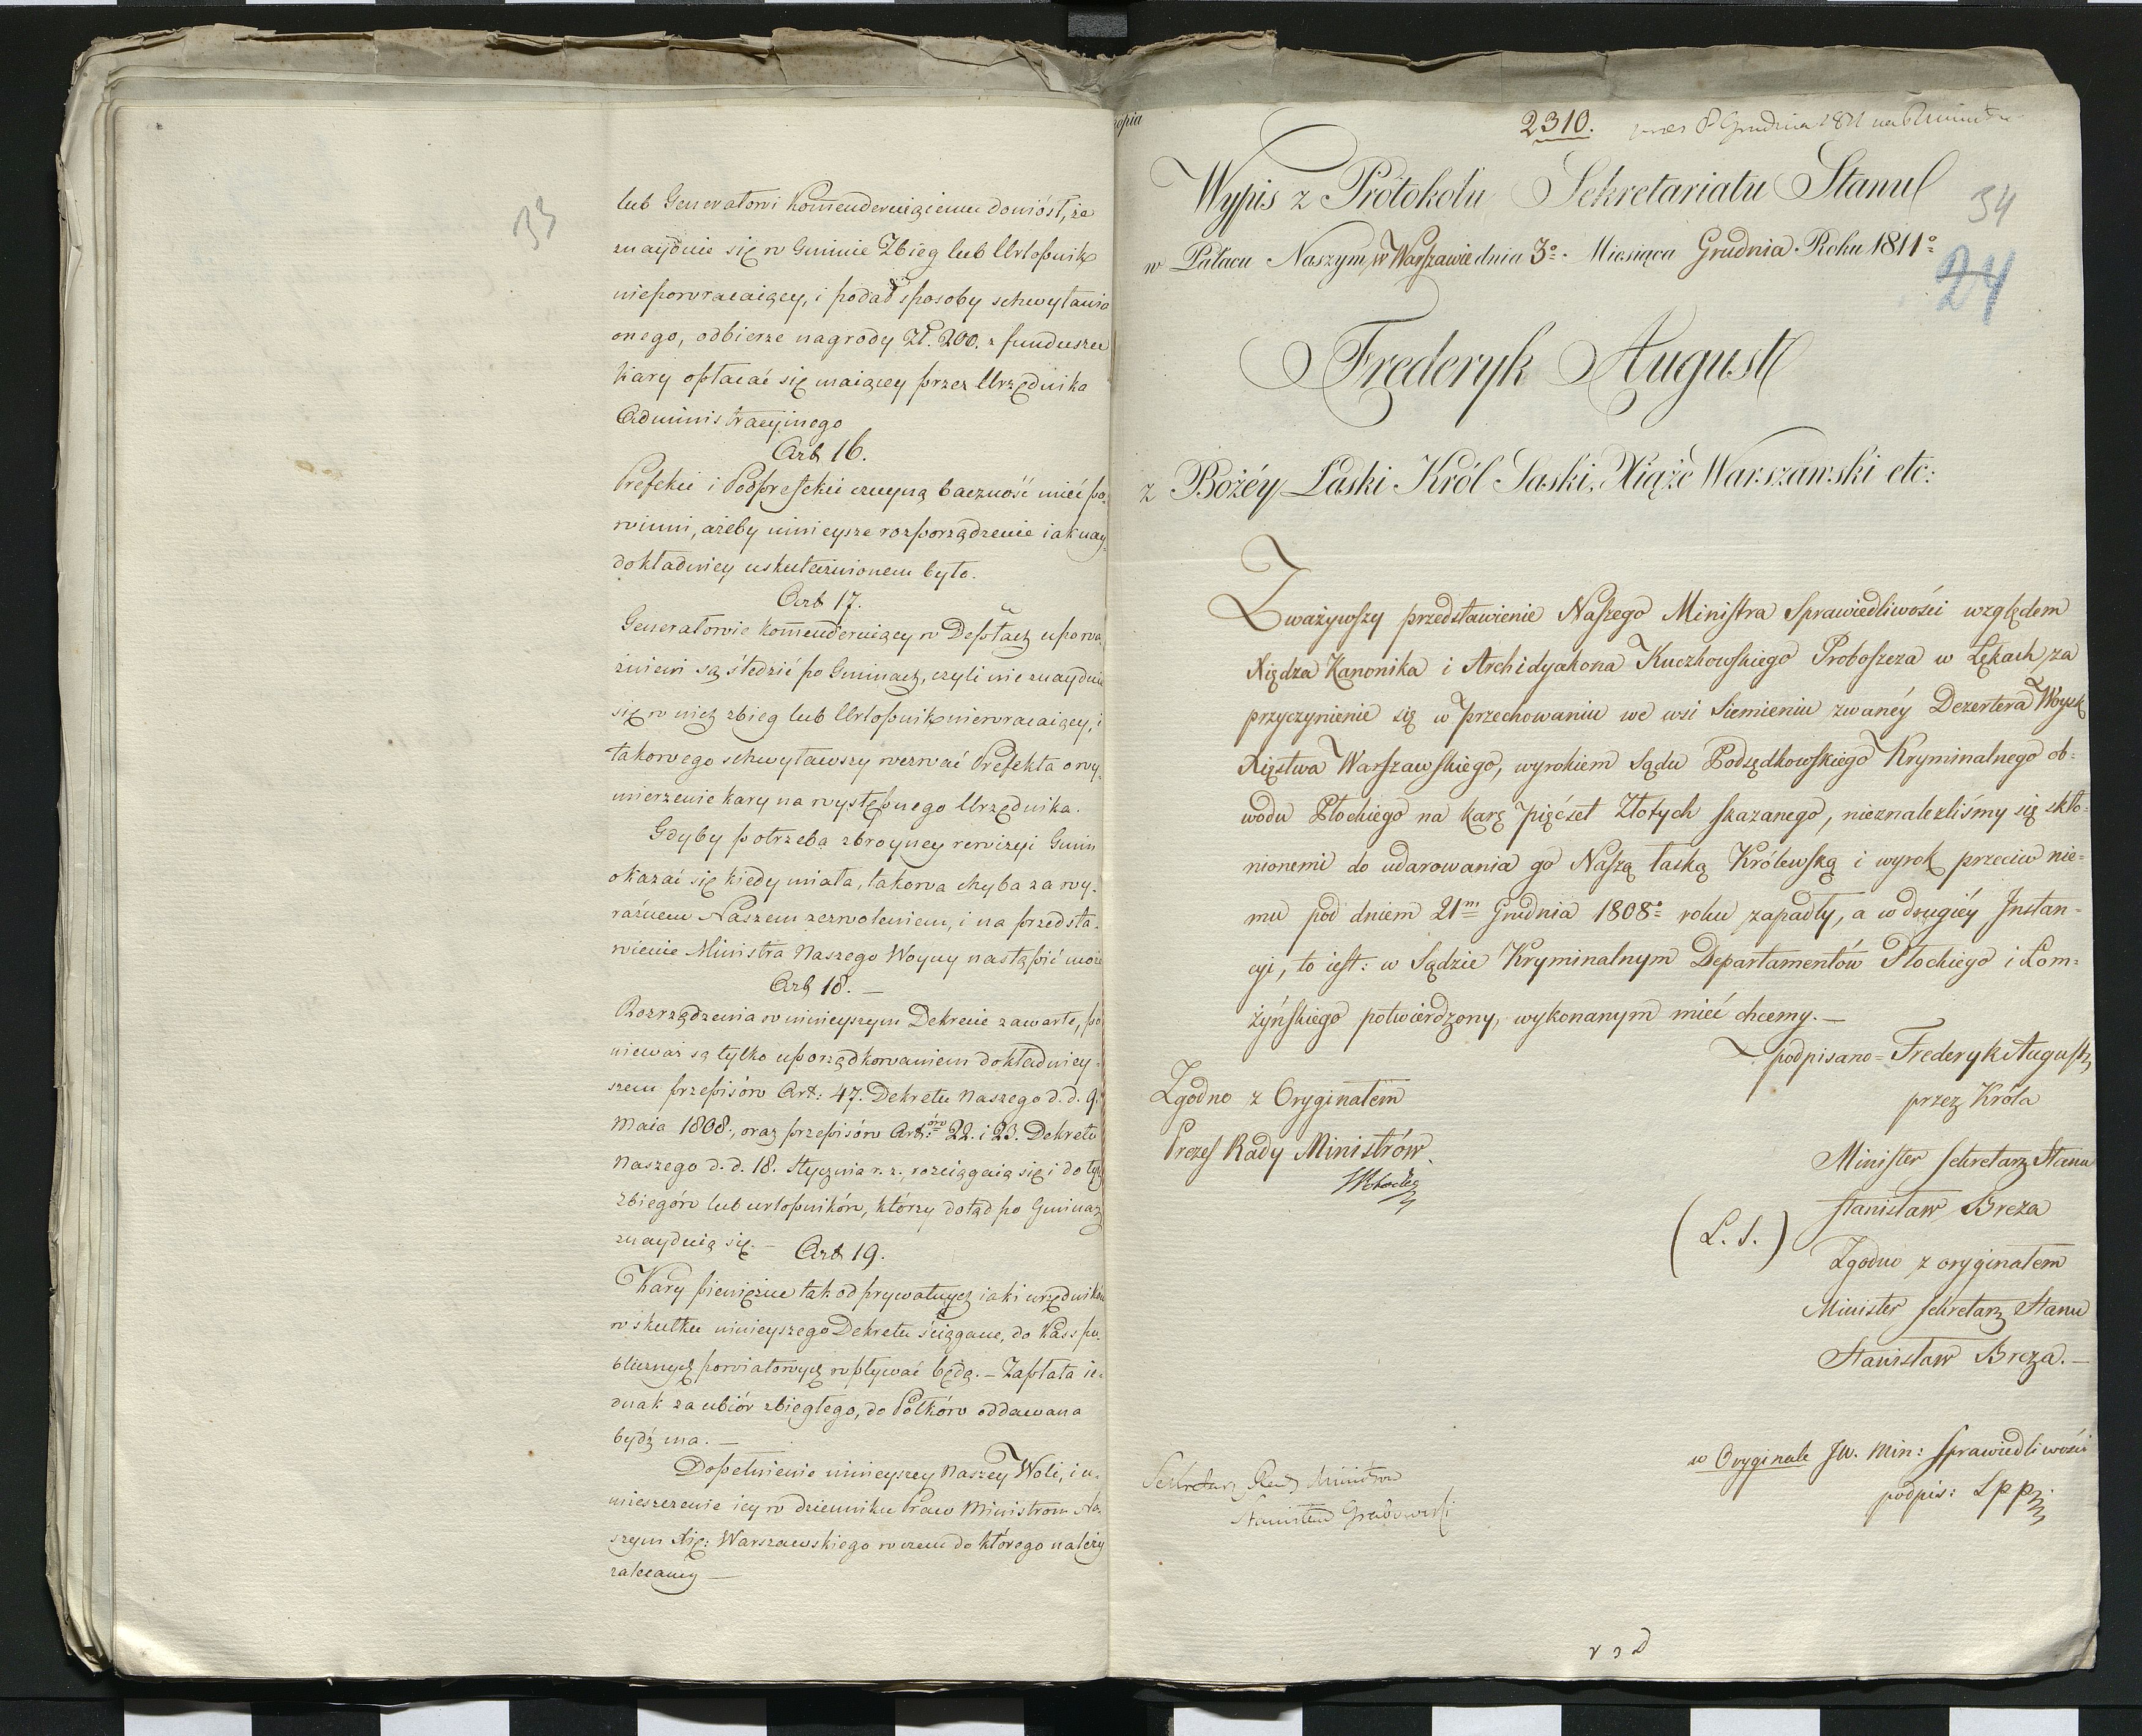 33
lub Generałowi Kommenderuiącemu doniósł, że
znayduie się w Gminie Zbieg lub Urlopnik
niepowracaiący, i podał sposoby schwytania
onego, odbierze nagrody Zł. 200. z funduszu
kary opłacać się maiącey przez Urzędnika
Administracyinego
Art 16.
Prefekci i Podprefekci czuyną baczność mieć po-
winni, ażeby ninieysze rozporządzenie iak nay-
dokładniey uskutecznionem było.
Art 17.
Generałowie kommenderuiący w Depttach upowa-
żnieni są śledzić po Gminach, czyli nie znayduie
się w nich zbieg lub Urlopnik niewracaiący, i
takowego schwytawszy wezwać Prefekta o wy-
mierzenie kary na występnego Urzędnika.
Gdyby potrzeba zbroyney rewizyi Gmin
okazać się kiedy miała, takowa chyba za wy-
raźnem Naszem zezwoleniem, i na przedsta-
wienie Ministra Naszego Woyny nastąpić może
Art 18. —
Rozrządzenia w ninieyszym Dekrecie zawarte, po
nieważ są tylko uporządkowaniem dokładniey-
szem przepisów Art: 47. Dekretu Naszego d. d. 9.
Maia 1808., oraz przepisów Art:ów 22. i 23. Dekretu
Naszego d. d. 18. Stycznia r. z., rozciągaią się i do tych
zbiegów lub urlopników, którzy dotąd po Gminach
znayduią się. — Art 19.
Kary pieniężne tak od prywatnych iak i urzędników
w skutku ninieyszego Dekretu ściągane, do Kass pu-
blicznych powiatowych wpływać będą. — Zapłata ie-
dnak za ubiór zbiegłego, do Półków oddawana
bydź ma. —
Dopełnienie ninieyszey Naszey Woli, i u-
mieszczenie iey w dzienniku Praw Ministrom Na-
szym Xię: Warszawskiego w czem do którego należy
zalecamy —
opia
2310.
8 Grudnia 1811
Wypis z Protokołu Sekretariatu Stanu
34
w Pałacu Naszym w Warszawie dnia 3o. Miesiąca Grudnia Roku 1811o
24
Frederyk August
z Bożéy Łaski Król Saski, Xiążę Warszawski etc:
Zważywszy przedstawienie Naszego Ministra Sprawiedliwości względem
Xiędza Kanonika i Archidyakona Kuczkowskiego Proboszcza w Łękach za
przyczynienie się w przechowaniu we wsi Siemieniu zwanéy Dezertera Woysk
Xięstwa Warszawskiego, wyrokiem Sądu Podsędkowskiego Kryminalnego ob-
wodu Płockiego na karę pięćset Złotych skazanego, nieznaleźliśmy się skło-
nionemi do udarowania go Naszą łaską Królewską i wyrok przeciw nie-
mu pod dniem 21m Grudnia 1808o roku zapadły, a w drugiéy Instan-
cyi, to iest: w Sądzie Kryminalnym Departamentów Płockiego i Łom-
żyńskiego potwierdzony, wykonanym mieć chcemy. —
podpisano = Frederyk August,
przez Króla
Zgodno z Oryginałem
Prezes Rady Ministrów
Minister Sekretarz Stanu
Stanisław Breza
(L. S.)
Zgodno z oryginałem
Minister Sekretarz Stanu
Stanisław Breza. —
w Oryginale JW. Min: Sprawiedliwości
podpis: Łpp
Sekretarz Rady Ministrów
Stanisław Grabowski